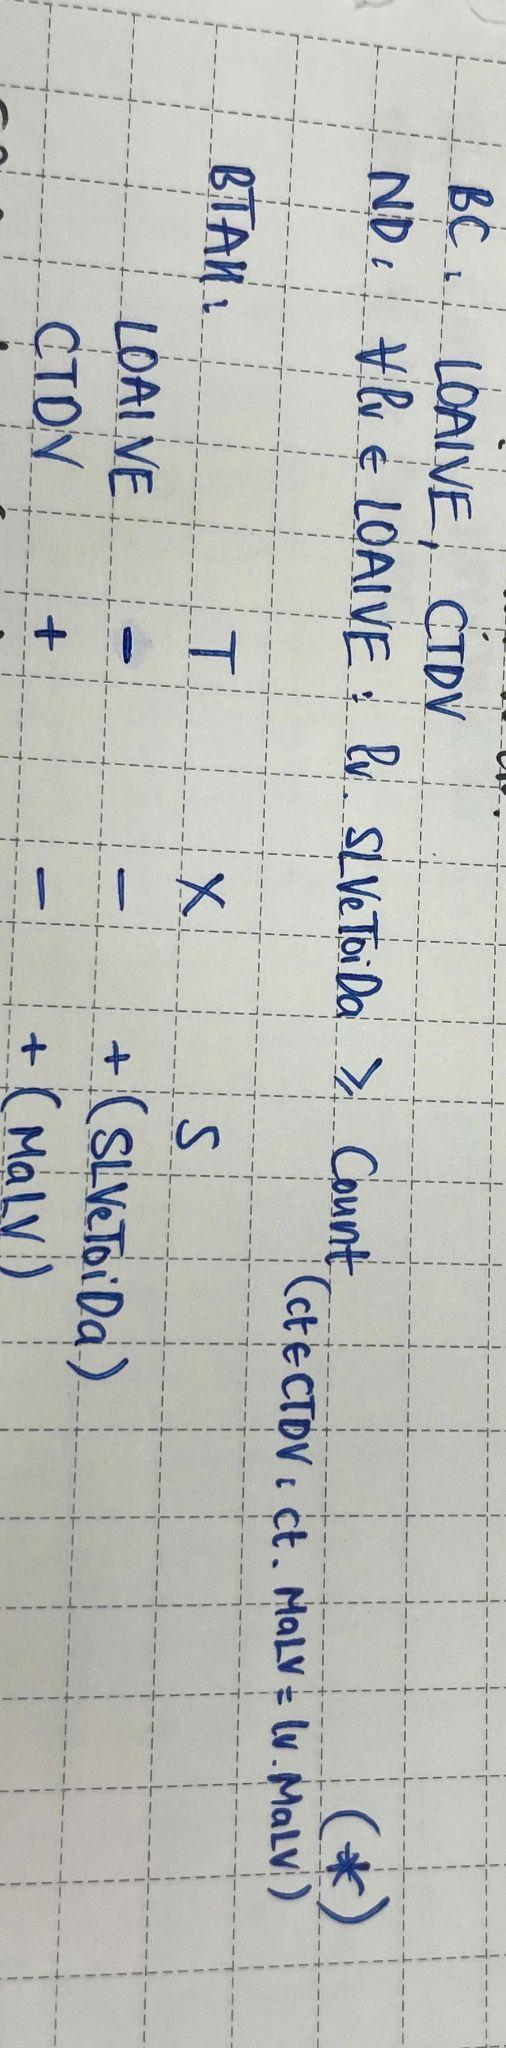 BC: LOAIVE, CTDV
ND: ∀ lv ∈ LOAIVE: lv. SLVeToiDa ≥ Count (*)
(ct ∈ CTDV: ct. MaLV = lv. MaLV)
BTAH:
T X S
LOAIVE - - + (SLVeToiDa)
CTDV + - + (MaLV)